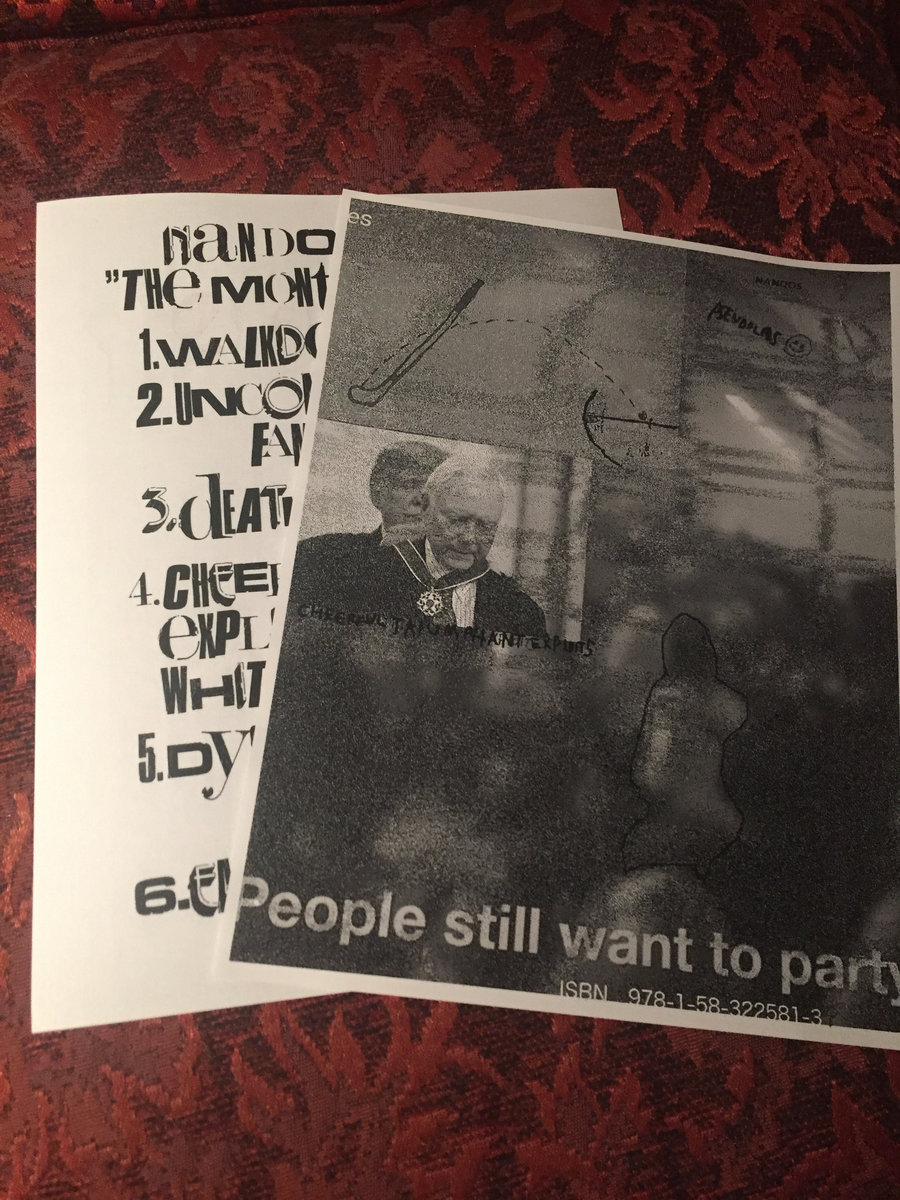 NANDO
"THE MONT
1.WALKDO
2.UNCO
FAN
3.DEAT
4.CHEE
EXPL
WHAT
5.DY
6.
es
NANDOS
CHEERFUL TRIUMPHANT EXPLOITS
People still want to party
ISBN 978-1-58-322581-3